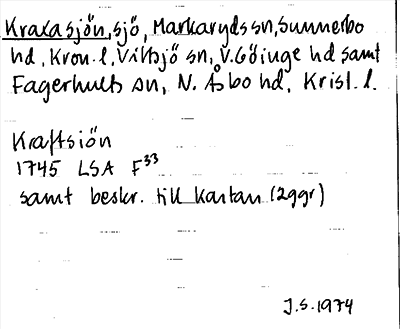 Kraxasjön, sjö, Markaryds sn, Sunnerbo
hd, Kron. l, Vittsjö sn, V. Göinge hd samt
Fagerhults sn, N. Åsbo hd, Krist. l.
Kraftsiön
1745 LSA F³³
samt beskr. till kartan (2ggr)
J.S. 1974